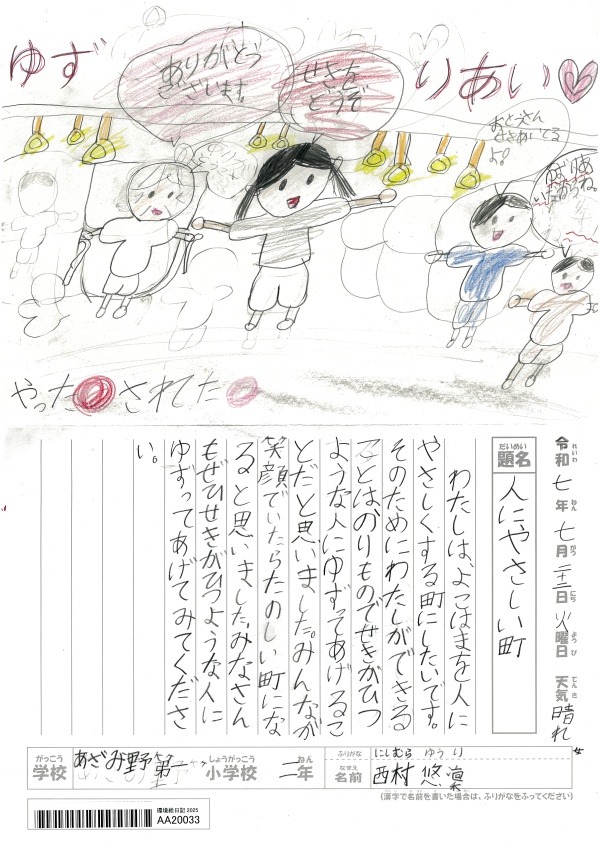 ゆずりあい♡
ありがとう
ございます。
せきを
どうぞ
せきあいてる
よ。
やった されてた
令和 七年 七月 二十二日 火曜日 天気 晴れ
れいわ ねん がつ にち ようび てんき
だいめい
題名 人にやさしい町
わたしは、よこはまを人に
やさしくする町にしたいです。
そのためにわたしができる
ことは、のりものでせきがひつ
ような人にゆずってあげるこ
とだと思いました。みんなが
笑顔でいたらたのしい町にな
ると思いました。みなさん
もぜひせきがひつような人に
ゆずってあげてみてくださ
い。
がっこう しょうがっこう ねん
学校 あざみ野第一 小学校 二年
ふりがな にしむら ゆうり
なまえ
名前 西村 悠凜
(漢字で名前を書いた場合は、ふりがなをふってください)
環境絵日記 2025
AA20033